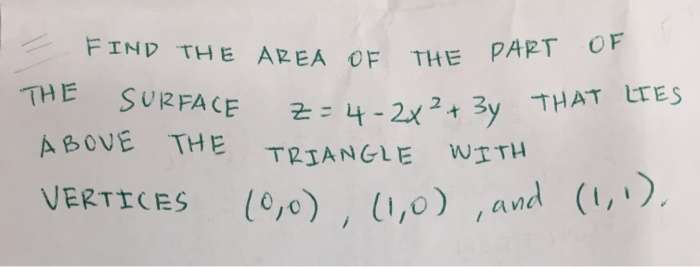 FIND THE AREA OF THE PART OF
THE SURFACE z = 4 - 2x² + 3y THAT LIES
ABOVE THE TRIANGLE WITH
VERTICES (0,0), (1,0), and (1,1).